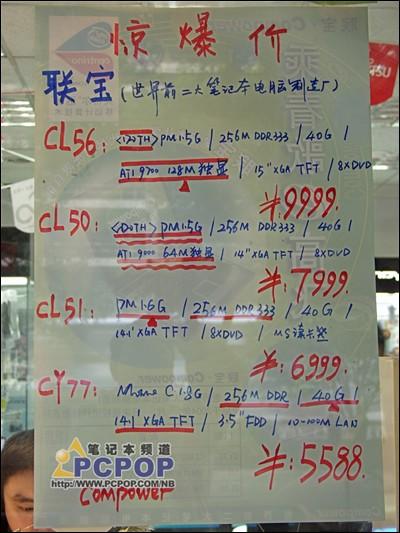 惊爆价
联宝(世界前二大笔记本电脑制造厂)
CL56: <120TH> PM1.5G / 256M DDR333 / 40G /
ATI 9700 128M独显 / 15"XGA TFT / 8XDVD
¥:9999.
CL50: <DOTH> PM1.5G / 256M DDR333 / 40G /
ATI 9000 64M独显 / 14"XGA TFT / 8XDVD
¥:7999.
CL51: PM1.6G / 256M DDR333 / 40G /
14.1"XGA TFT / 8XDVD / MS读卡器
¥:6999.
CY77: C1.8G / 256M DDR / 40G /
14.1"XGA TFT / 3.5"FDD / 10-100M LAN
¥:5588.
笔记本频道
PCPOP
HTTP://WWW.PCPOP.COM/NB
Compower